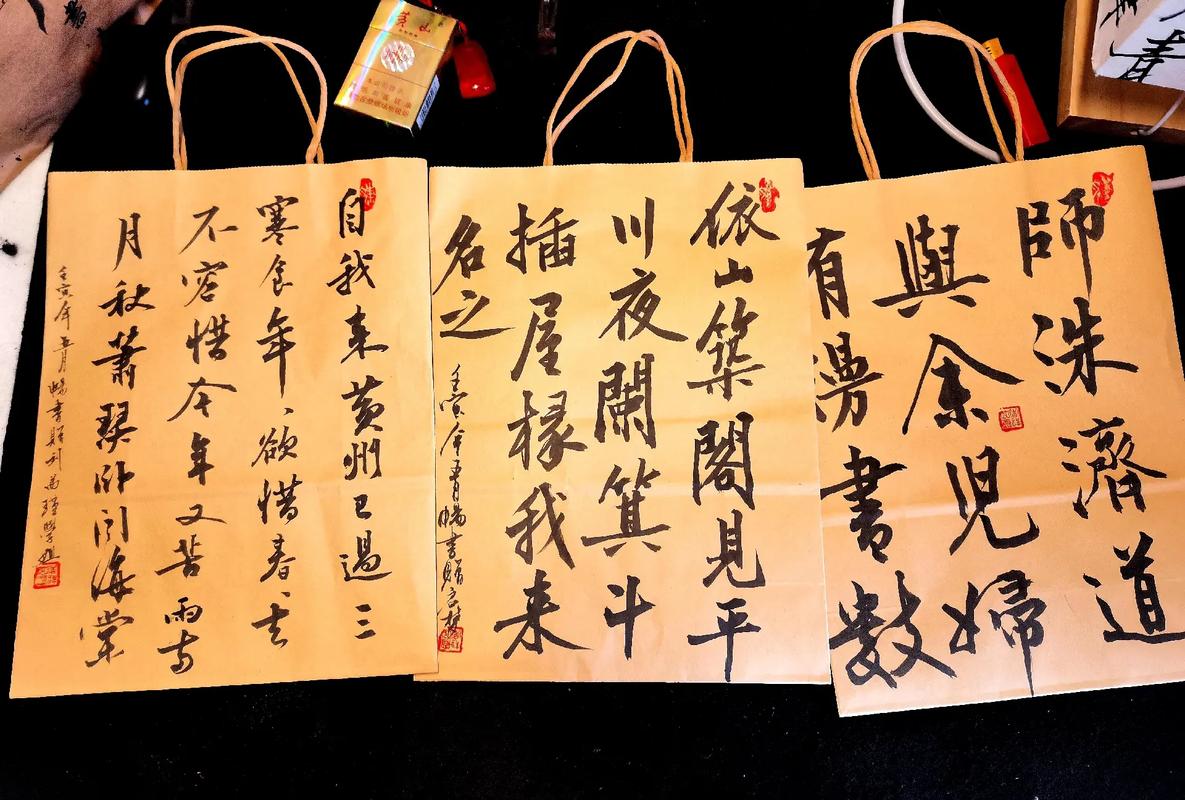 師洙濟道
與余兒婦
有漫書數
依山築閣見平
川夜闌箕斗
插屋椽我来
名之
壬寅年五月暢書贈
自我来黄州已過三
寒食年、欲惜春、去
不容惜今年又苦雨两
月秋蕭瑟卧闻海棠
壬寅年五月暢書贈刘
黄山